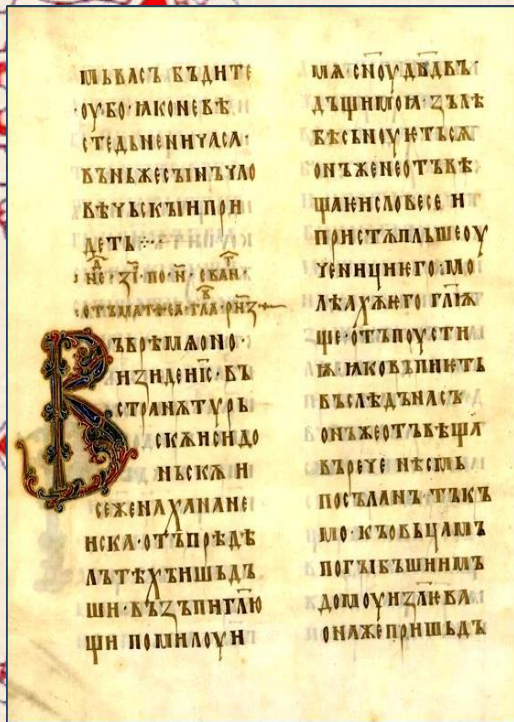 мьвасъ бъдите
·оубо·ꙗконевѣ
стедьненичаса·
въньжесꙑнъчло
вѣчьскꙑипри
деть
·нⷣе҃·з҃ı·по·н҃·еван҃·
·отъматѳеа·гла҃·рн҃з
Въврѣмѧоно·
изидеи҃с·въ
странѫтурь
скѫисидо
ньскѫи
сеженахананѐ
иска·отъпрѣдѣ
лътѣхъишьдъ
ши·възъпигл҃ю
щи помилоуи
мѧ·сн҃оудв҃двъ·
дъщимоꙗ·зълѣ
бѣсьноуѥтьсѧ
онъженеотъвѣ
щаѥисловесе и
пристѫпльшеоу
ченициѥго·мо
лѣахѫѥго гл҃ѭ
ще·отъпоусти
ѭ·ꙗковъпиѥть
въслѣдънасъ
онъжеотъвѣща
върече нѣсмь
посъланъ·тъкъ
мо·къовьцамъ
погꙑбъшиимъ
домоуизл҃ева
онажепришьдъ